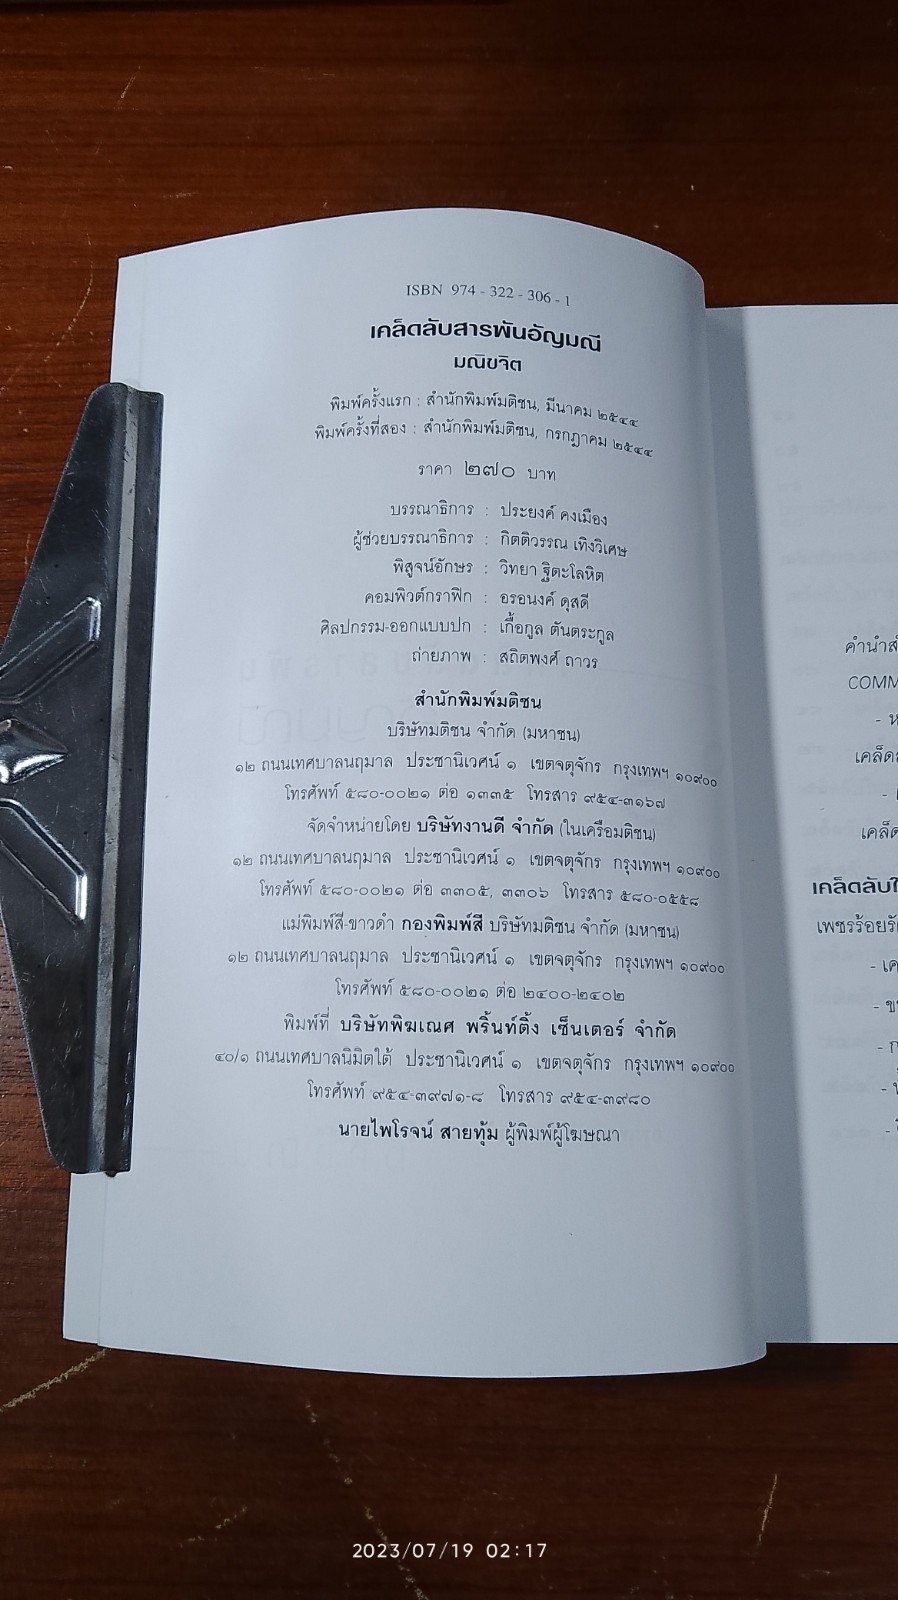 ISBN 974 - 322 - 306 - 1
เคล็ดลับสารพันอัญมณี
มณิขจิต
พิมพ์ครั้งแรก : สำนักพิมพ์มติชน, มีนาคม ๒๕๔๔
พิมพ์ครั้งที่สอง : สำนักพิมพ์มติชน, กรกฎาคม ๒๕๔๔
ราคา ๒๗๐ บาท
บรรณาธิการ : ประยงค์ คงเมือง
ผู้ช่วยบรรณาธิการ : กิตติวรรณ เทิงวิเศษ
พิสูจน์อักษร : วิทยา ฐิตะโลหิต
คอมพิวต์กราฟิก : อรอนงค์ ดุสดี
ศิลปกรรม-ออกแบบปก : เกื้อกูล ตันตระกูล
ถ่ายภาพ : สถิตพงศ์ ถาวร
สำนักพิมพ์มติชน
บริษัทมติชน จำกัด (มหาชน)
๑๒ ถนนเทศบาลนฤมาล ประชานิเวศน์ ๑ เขตจตุจักร กรุงเทพฯ ๑๐๙๐๐
โทรศัพท์ ๕๘๐-๐๐๒๑ ต่อ ๑๓๓๕ โทรสาร ๙๕๔-๓๑๖๗
จัดจำหน่ายโดย บริษัทงานดี จำกัด (ในเครือมติชน)
๑๒ ถนนเทศบาลนฤมาล ประชานิเวศน์ ๑ เขตจตุจักร กรุงเทพฯ ๑๐๙๐๐
โทรศัพท์ ๕๘๐-๐๐๒๑ ต่อ ๓๓๐๕, ๓๓๐๖ โทรสาร ๕๘๐-๐๕๕๘
แม่พิมพ์สี-ขาวดำ กองพิมพ์สี บริษัทมติชน จำกัด (มหาชน)
๑๒ ถนนเทศบาลนฤมาล ประชานิเวศน์ ๑ เขตจตุจักร กรุงเทพฯ ๑๐๙๐๐
โทรศัพท์ ๕๘๐-๐๐๒๑ ต่อ ๒๔๐๐-๒๔๐๒
พิมพ์ที่ บริษัทพิฆเณศ พริ้นท์ติ้ง เซ็นเตอร์ จำกัด
๔๐/๑ ถนนเทศบาลนิมิตใต้ ประชานิเวศน์ ๑ เขตจตุจักร กรุงเทพฯ ๑๐๙๐๐
โทรศัพท์ ๙๕๔-๓๙๗๑-๘ โทรสาร ๙๕๔-๓๙๘๐
นายไพโรจน์ สายทุ้ม ผู้พิมพ์ผู้โฆษณา
COMM
เคล็ด
เคล็ดลับใ
เพชรร้อยรั
2023/07/19 02:17